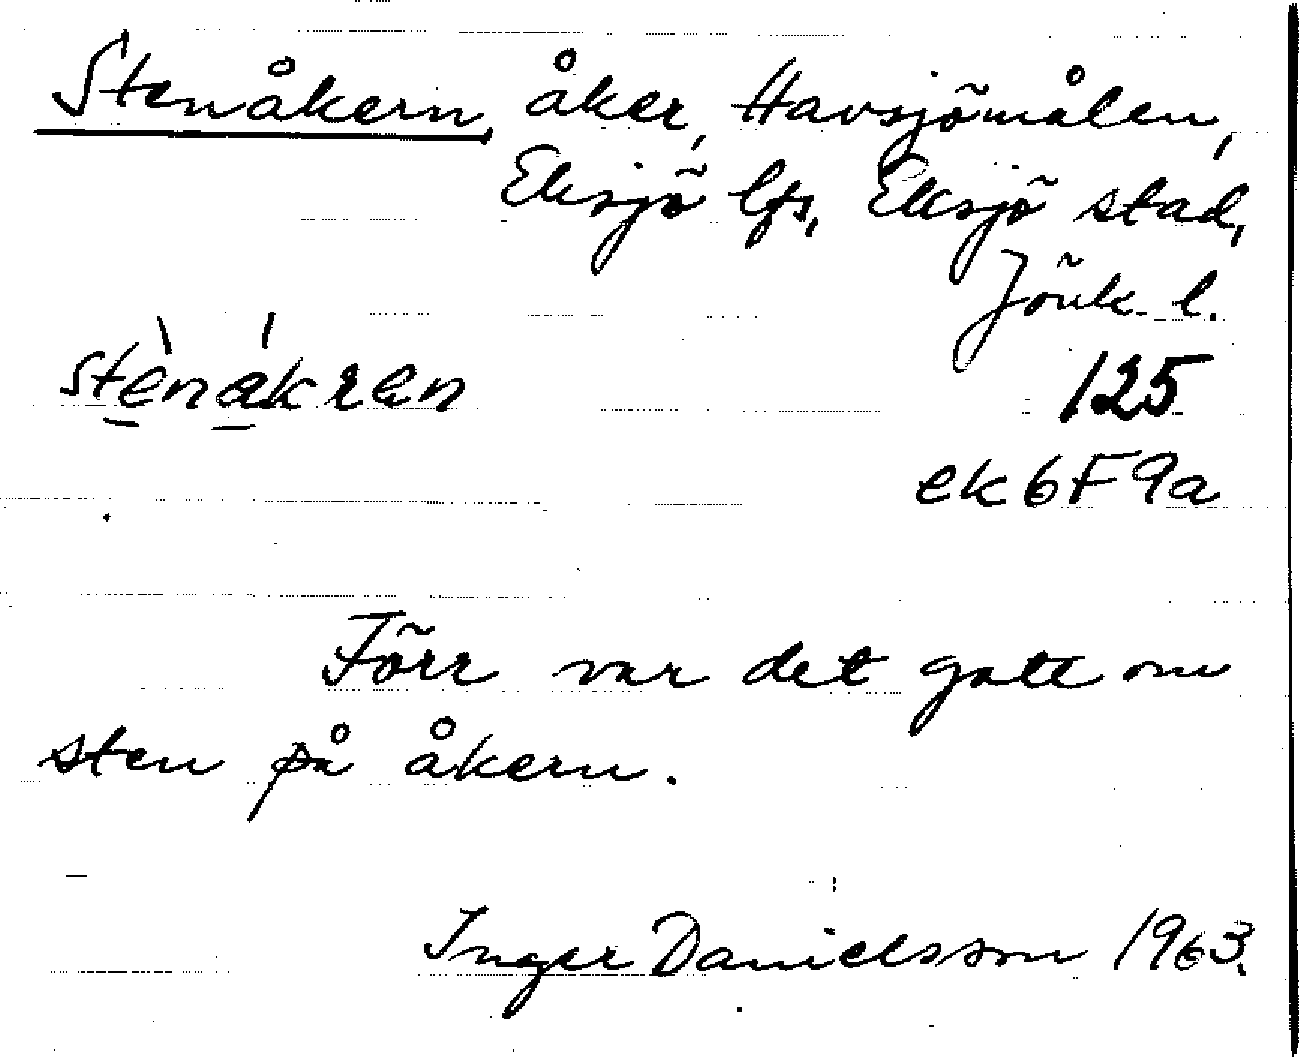 Stenåkern, åker, Havsjömålen,
Eksjö lfs, Eksjö stad,
Jönk. l.
stènákren 125
ek 6F 9a
Förr var det gott om
sten på åkern.
Inger Danielsson 1963.